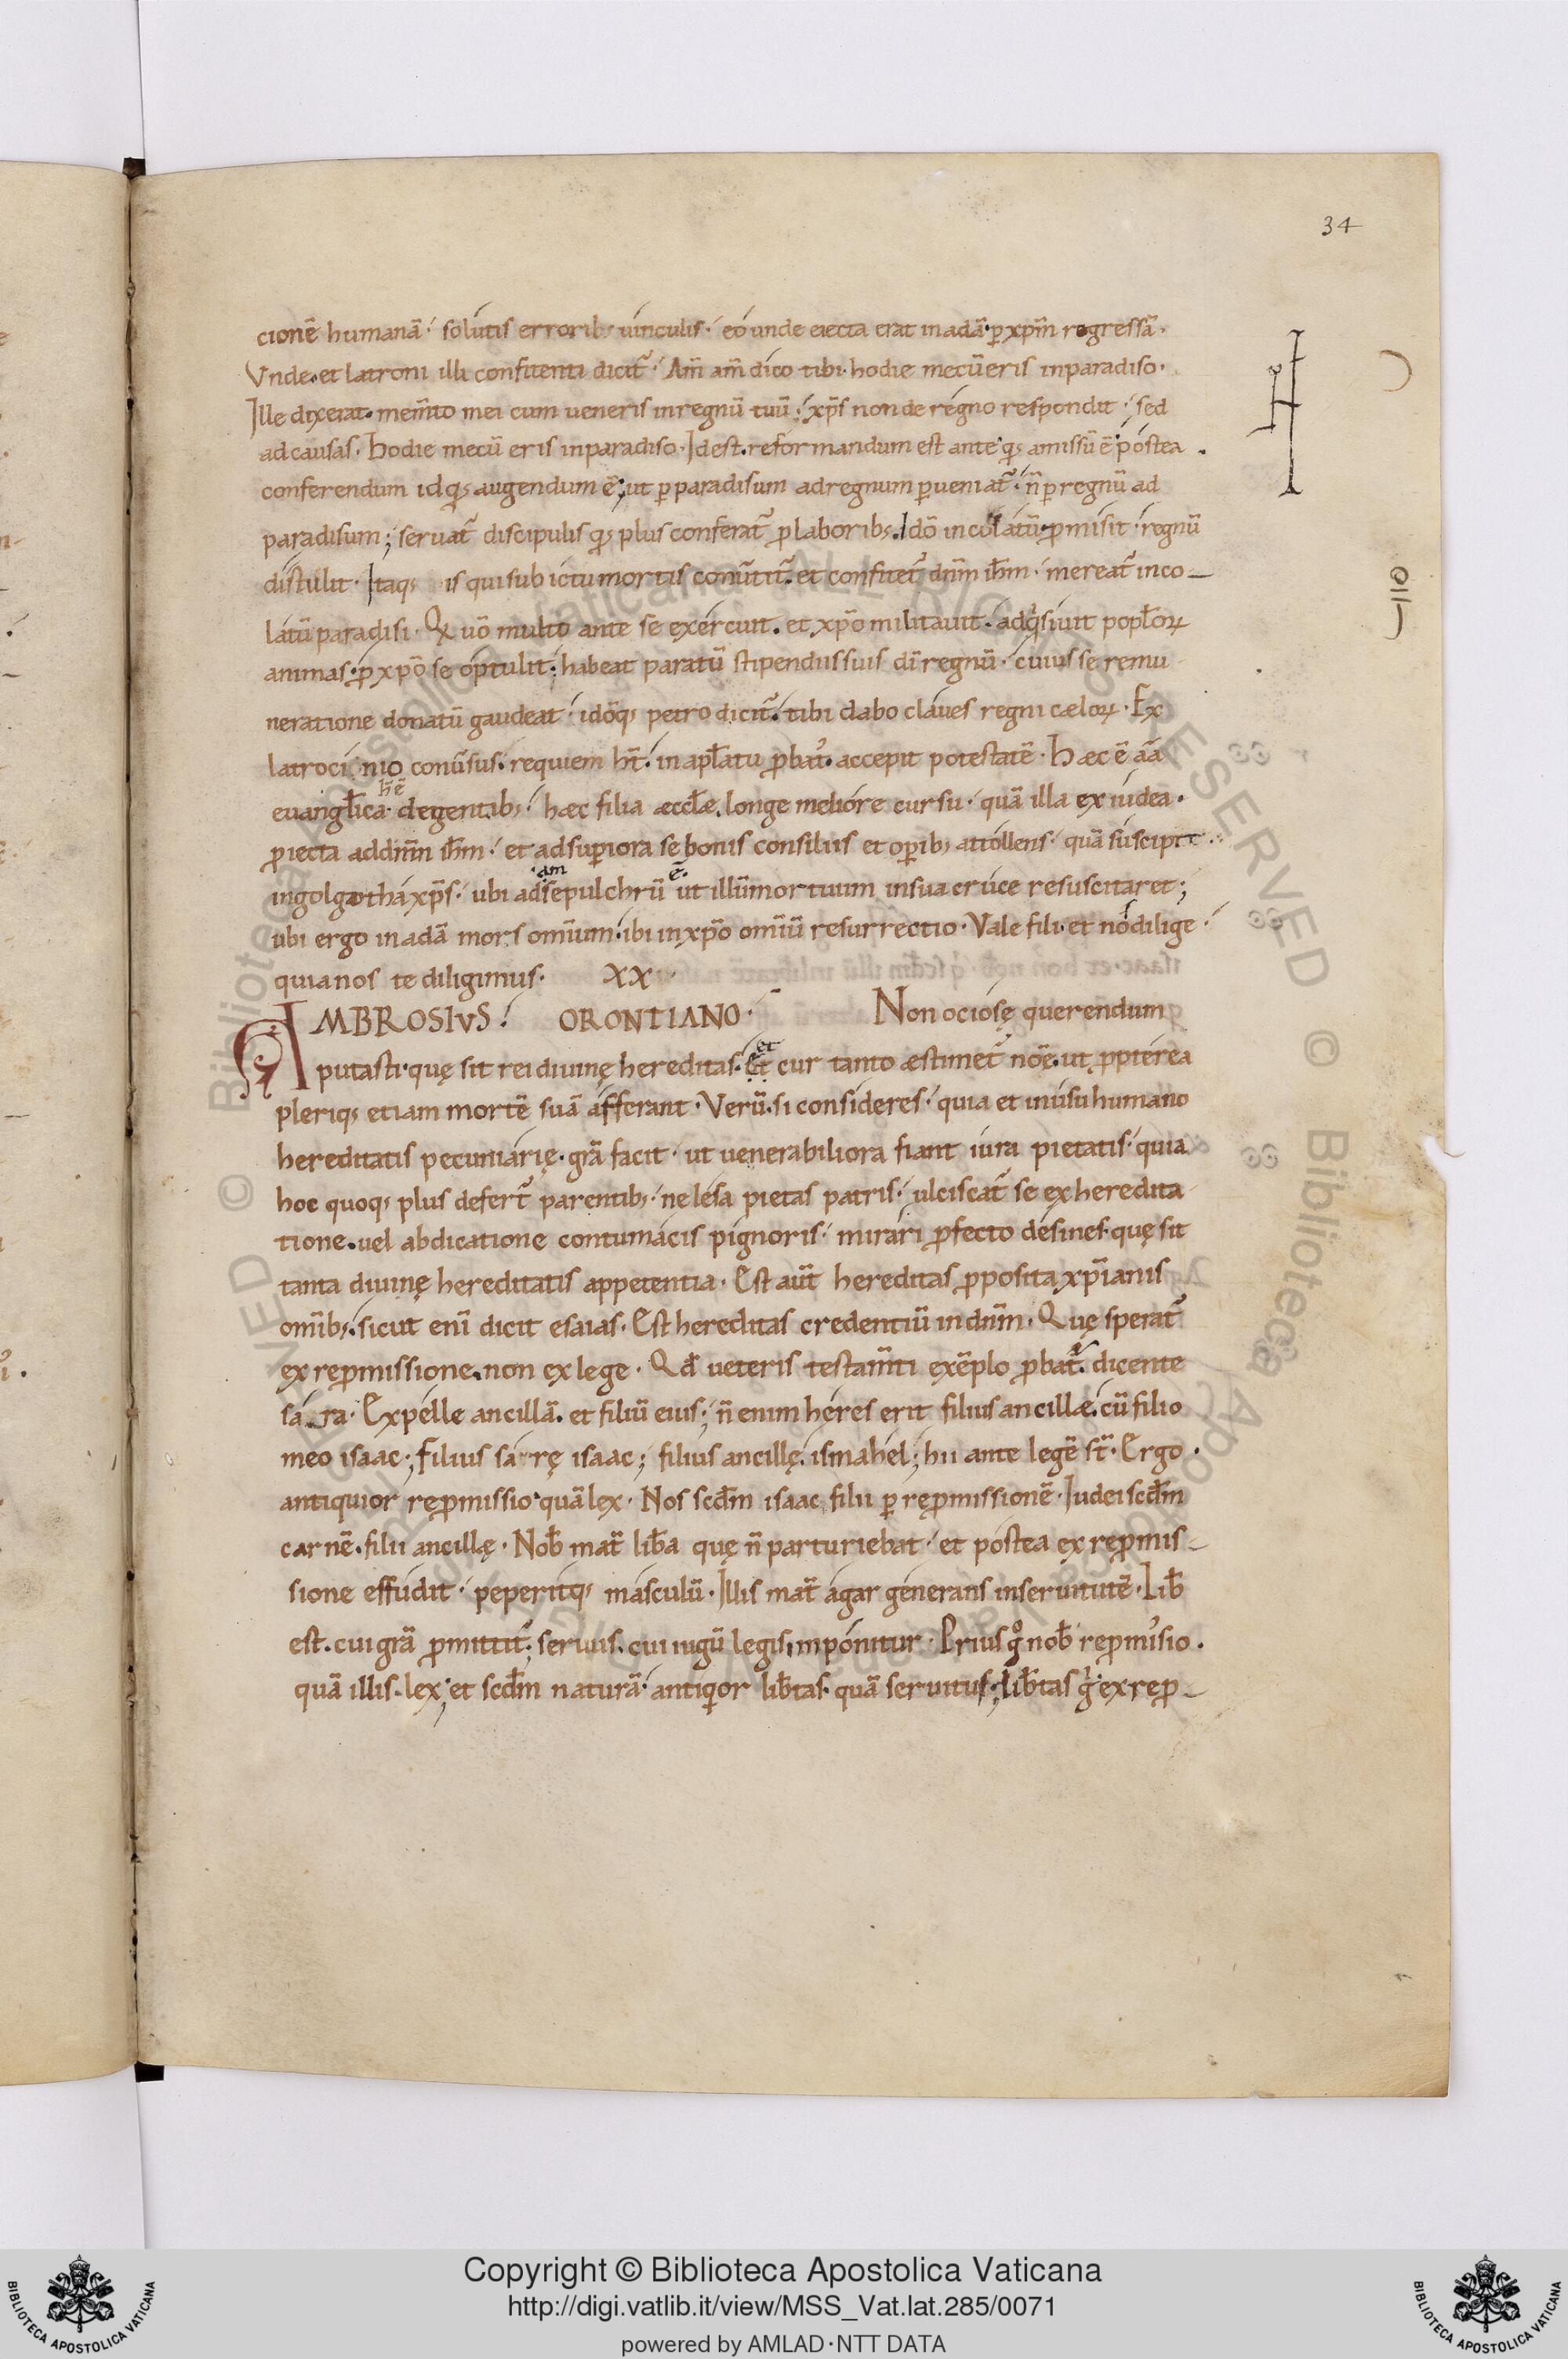 34
cionē humanā· solutis errorib; uinculis· eo unde eiecta erat in adā· p xpm̄ regressā·
Vnde· et latroni illi confitenti dicit̄· Am̄ am̄ dico tibi· hodie mecū eris in paradiso·
Ille dixerat· mem̄to mei cum ueneris in regnū tuū· xps̄ non de regno respondit· sed
ad causas· Hodie mecū eris in paradiso· Id est· reformandum est ante q; amissū ē· postea
conferendum id q; augendum ē; ut p paradisum ad regnum pueniat̄· n̄ p regnū ad
paradisum; seruat̄ discipulis q; plus conferat̄ p laborib;· Idō incolatū pmisit· regnū
distulit· Itaq; is qui sub ictu mortis conūtit̄· et confitet̄ dnm̄ ihm̄· mereat̄ inco-
latū paradisi· Qui uō multo ante se exercuit· et xpō militauit· adq̇siuit popl̄oꝝ
animas· p xpō se optulit· habeat paratū stipendiis suis dī regnū· cuius se remu
neratione donatū gaudeat· idōq; petro dicit̄· tibi dabo claues regni cæloꝝ· Ex
latrocinio conūsus· requiem ht̄· in apl̄atu pbat̄· accepit potestatē· Haec ē aīa
euangl̄ica· hē de gentib; haec filia æccl̄æ· longe meliore cursu· quā illa ex iudea·
piecta ad dnm̄ ihm̄· et ad supiora se bonis consiliis et opib; attollens· quā suscipit
in golgotha xps̄· ubi adam sepulchrū ē· ut illū mortuum in sua cruce resuscitaret;
ubi ergo in adā mors omīum· ibi in xpō omīū resurrectio· Vale fili· et nos dilige·
quia nos te diligimus· XX·
AMBROSIVS· ORONTIANO· Non ociosę querendum
putasti· quę sit rei diuinę hereditas· et Et cur tanto æstimet̄ nōe· ut ppterea
pleriq; etiam mortē suā afferant· Verū· si consideres· quia et in usu humano
hereditatis pecuniarię· grā facit· ut uenerabiliora fiant iura pietatis· quia
hoc quoq; plus defert̄ parentib;· ne lesa pietas patris· ulciscat̄ se exheredita
tione· uel abdicatione contumacis pignoris· mirari pfecto desines· quę sit
tanta diuinę hereditatis appetentia· Est aut̄ hereditas pposita xp̄ianis
omīb;· sicut enī dicit esaias· Est hereditas credentiū in dnm̄· Quę sperat̄
ex repmissione· non ex lege· Qd̄ ueteris testam̄ti exēplo pbat̄· dicente
sarra· Expelle ancillā· et filiū eius; n̄ enim heres erit filius ancillæ· cū filio
meo isaac; Filius sarrę isaac; filius ancillę· ismahel; hii ante legē st̄· Ergo
antiquior repmissio quā lex· Nos scdm̄ isaac filii p repmissionē· Iudei scdm̄
carnē· filii ancillę· Nob̄ mat̄ lib̄a quę n̄ parturiebat· et postea ex repmis-
sione effudit· peperitq; masculū· Illis mat̄ agar generans in seruitutē· Lib̄
est· cui grā pmittit̄; seruus· cui iugū legis imponitur· Prius g° nob̄ repmisio·
quā illis lex; et scdm̄ naturā· antiq̇or lib̄tas· quā seruitus; lib̄tas g° ex rep-
Copyright © Biblioteca Apostolica Vaticana
http://digi.vatlib.it/view/MSS_Vat.lat.285/0071
powered by AMLAD·NTT DATA